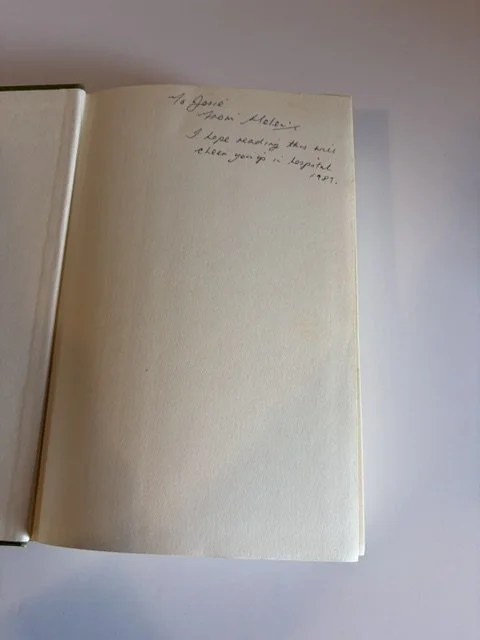 To José
from
I hope reading this will
cheer you up in hospital
1987.